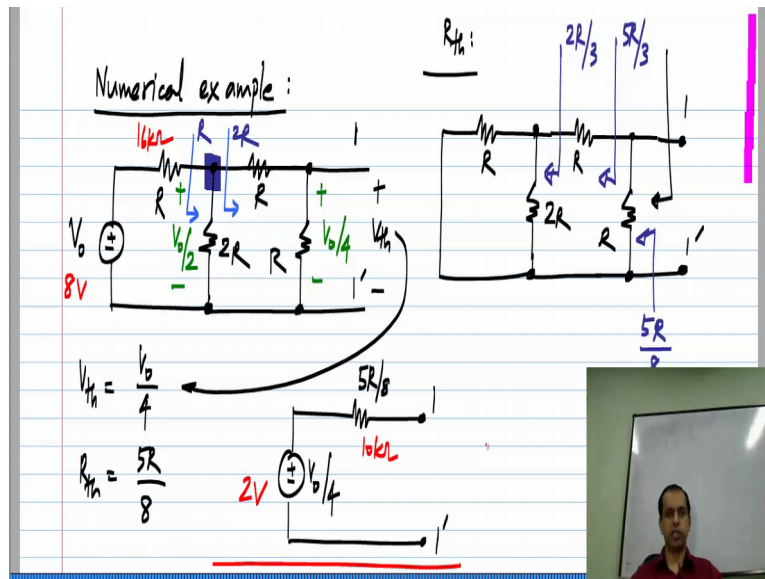 Numerical example :
16kΩ
R
2R
1
R
R
+
+
+
V₀
V₀/2
2R
R
V₀/4
Vth
8V
−
−
1' −
Vth = V₀/4
Rth = 5R/8
5R/8
1
10kΩ
2V
V₀/4
1'
Rth :
2R/3
5R/3
1
R
R
2R
R
1'
5R/8